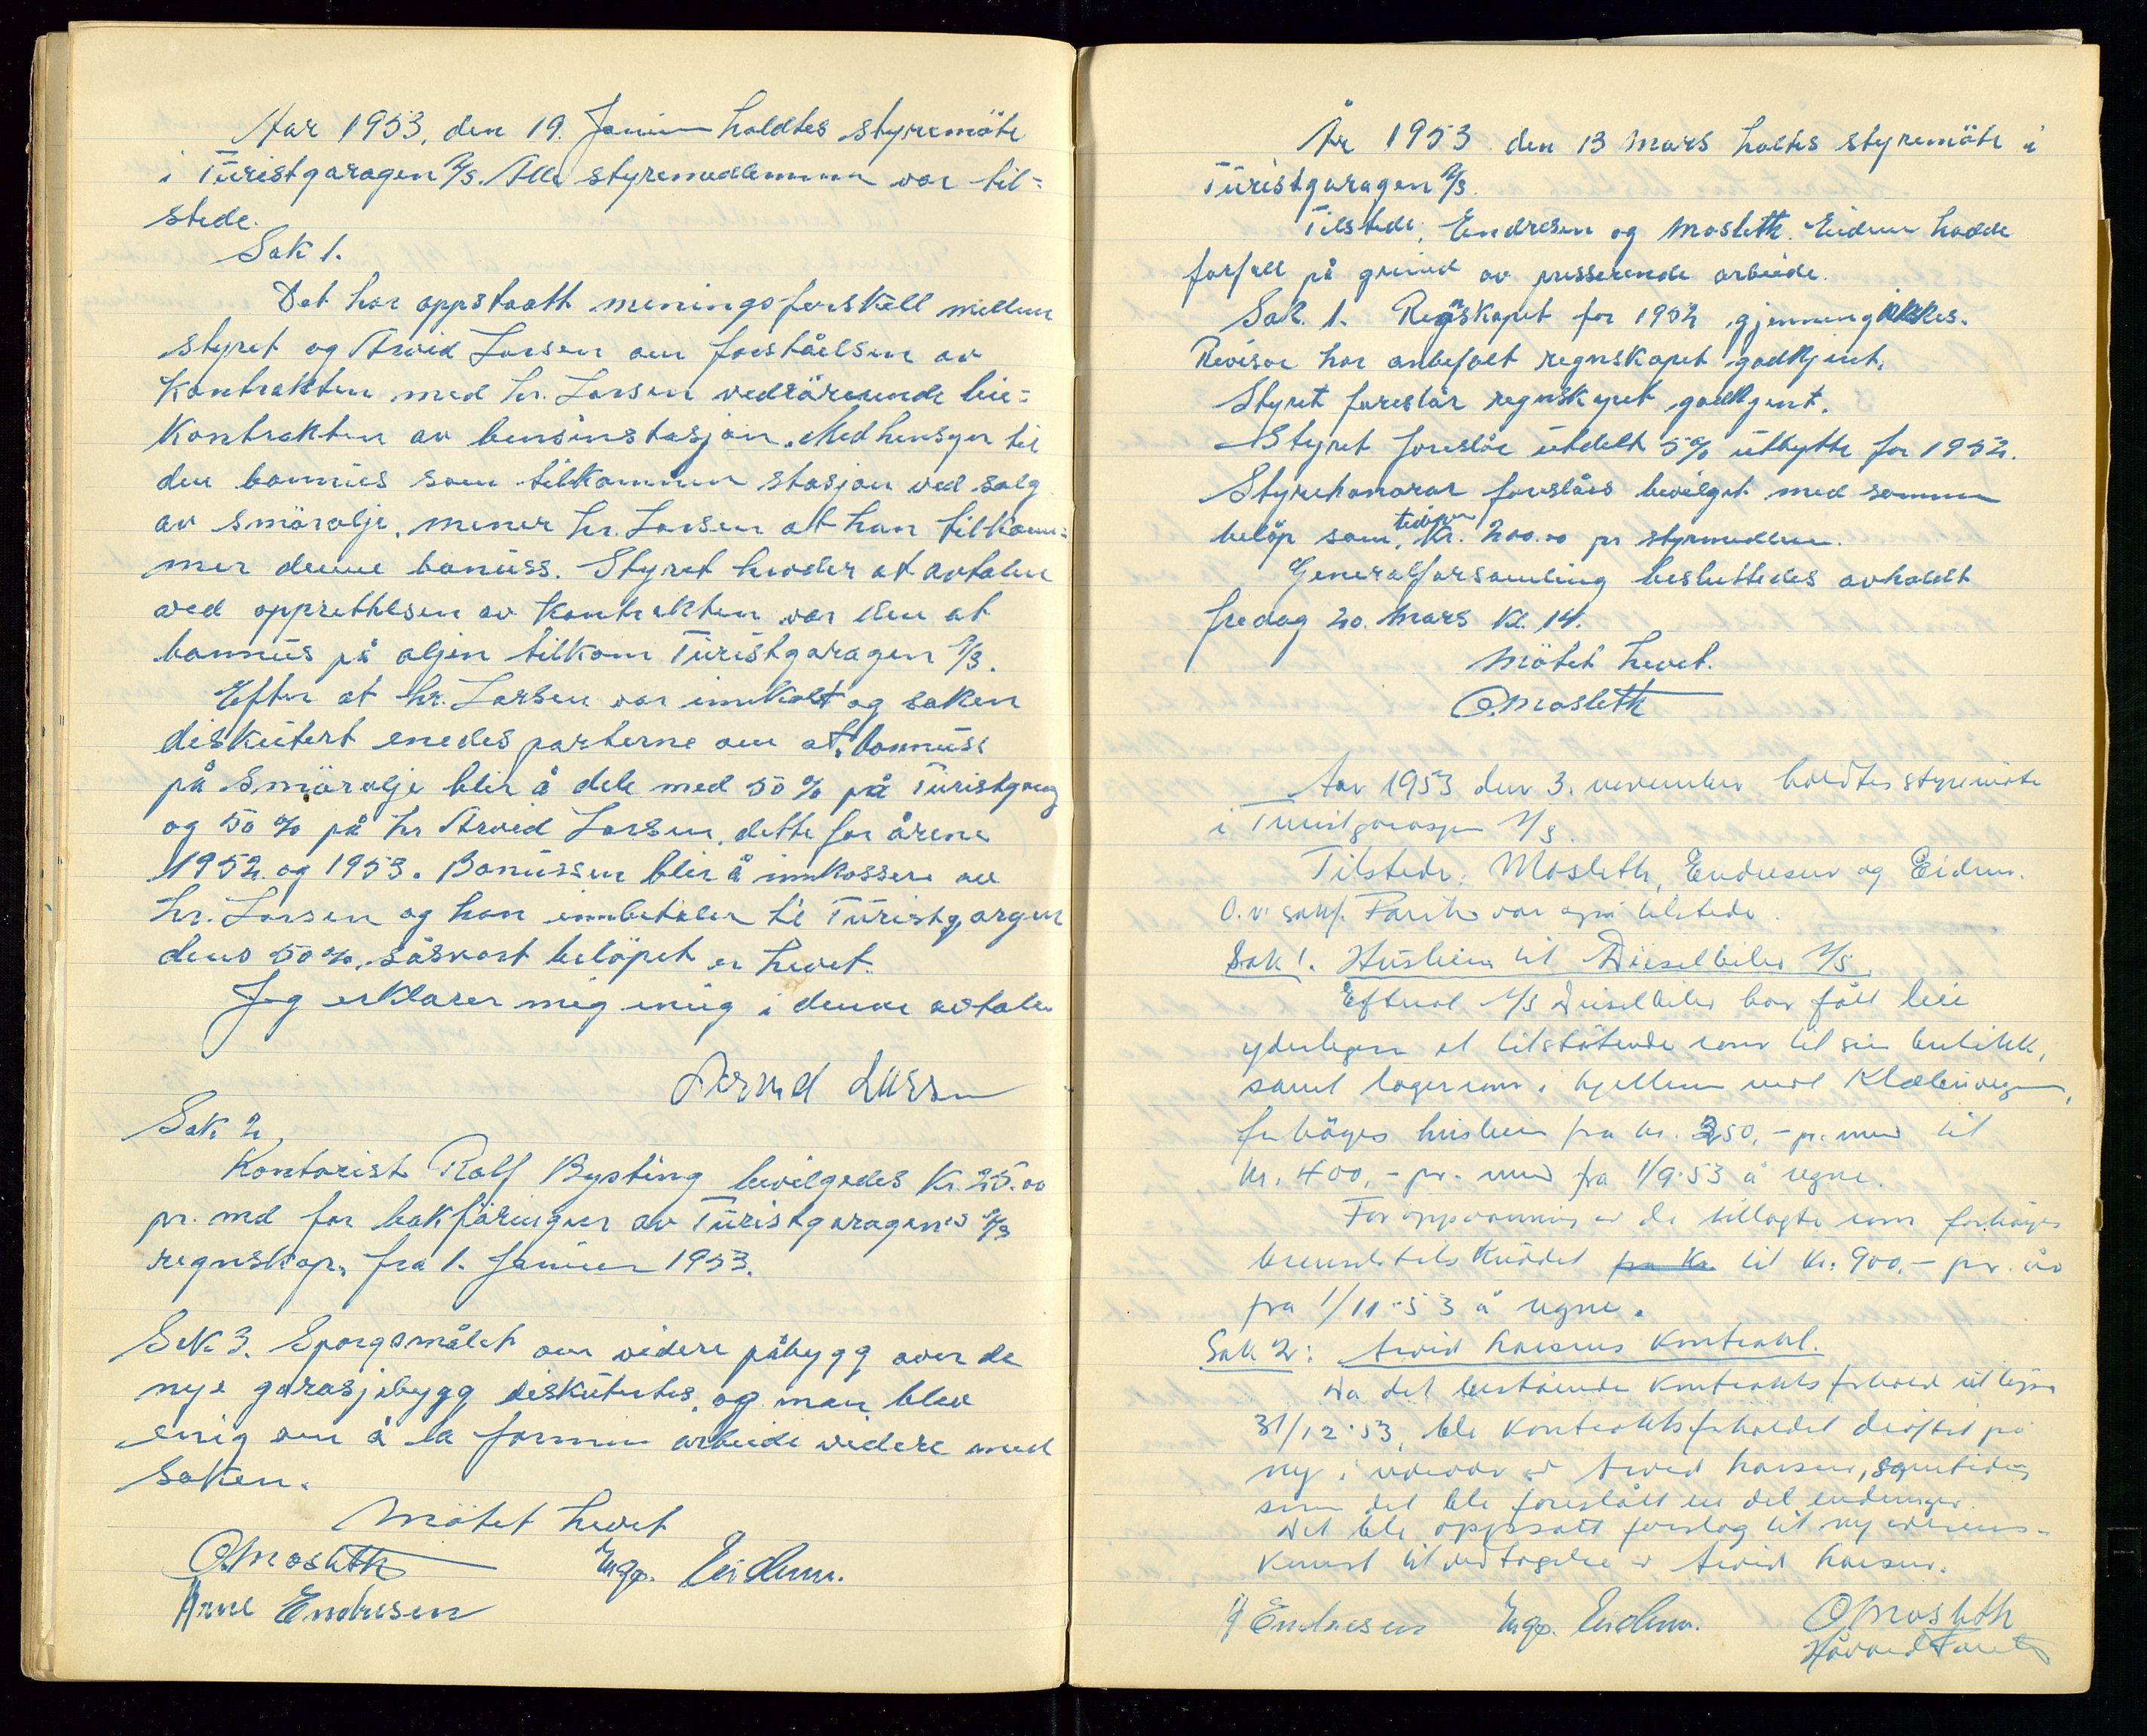 Aar 1953, den 19. Januar holdtes styremöte
i Turistgaragen A/S. Alle styremedlemmer var til=
stede.
Sak 1.
Det har oppstaatt meningsforskell mellem
styret og Arvid Larsen om forståelsen av
Kontrakten med hr. Larsen vedrörende leie=
Kontrakten av bensinstasjon. Med hensyn til
den bonnus som tilkommer stasjon ved salg
av smörolje, mener hr. Larsen at han tilkom=
mer denne bonuss. Styret hevder at avtalen
ved opprettelsen av Kontrakten var den at
bonnus på oljen tilkom Turistgaragen A/S.
Efter at hr. Larsen var innkalt og saken
diskutert enedes parterne om at bonnuss
på Smörolje blir å dele med 50% på Turistgarag
og 50% på hr Arvid Larsen, dette for årene
1952 og 1953. Bonussen blir å innkassere av
hr. Larsen og han innbetaler til Turistgargen
dens 50%, såsnart belöpet er hevet.
Jeg erklærer mig enig i denne avtalen
Arvid Larsen
Sak 2,
Kontorist Rolf Bysting bevilgedes Kr. 25.00
pr. md for bokföringen av Turistgaragen's A/S
regnskap, fra 1. Januar 1953.
Sak 3. Sporgsmålet om videre påbygg over de
nye garasjebygg diskutertes, og man blev
enig om å la formann arbeide videre med
saken.
Mötet hevet
O. Mosleth Inge. Eidem.
Arne Endresen
År 1953 den 13 Mars holtes styremöte i
Turistgaragen A/S.
Tilstede, Endresen og Mosleth. Eidem hadde
forfall på grund av presserende arbeide.
Sak. 1. Regnskapet for 1952 gjennemgikkes.
Revisor har anbefalt regnskapet godkjent.
Styret foreslår regnskapet godkjent.
Styret foreslår utdelt 5% utbytte for 1952.
Styrehonorar foreslåes bevilget med samme
belöp som tidligere Kr. 200.00 pr styremedlem.
Generalforsamling besluttedes avholdt
fredag 20. Mars Kl. 14.
Mötet hevet.
O. Mosleth
Aar 1953 den 3. november holdtes styremöte
i Turistgarasjen A/S.
Tilstede: Mosleth, Endresen og Eidem.
O.r. sakf. var også tilstede.
Sak 1. Husleien til Dieselbiler A/S.
Efterat A/S Dieselbiler har fått leie
yderligere et tilstötende rom til sin butikk,
samt lagerrom i kjelleren mot Klæbuvegen,
forhöges husleien fra kr. 350,- pr. mnd til
kr. 400,- pr. mnd fra 1/9-53 å regne.
For oppvarming av de tillagte rom forhöges
brenseltilskuddet fra Kr. til kr. 900.- pr. år
fra 1/11-53 å regne.
Sak 2: Arvid Larsens Kontrakt.
Da det bestående kontraktsforhold utlöper
31/12-53, ble kontraktsforholdet dröftet på
ny i nærvær av Arvid Larsen, samtidig
som det ble foreslått en del endringer.
Det ble oppsatt forslag til ny overens-
komst til vedtagelse av Arvid Larsen.
A Endresen Inge. Eidem. O. Mosleth
Håvard